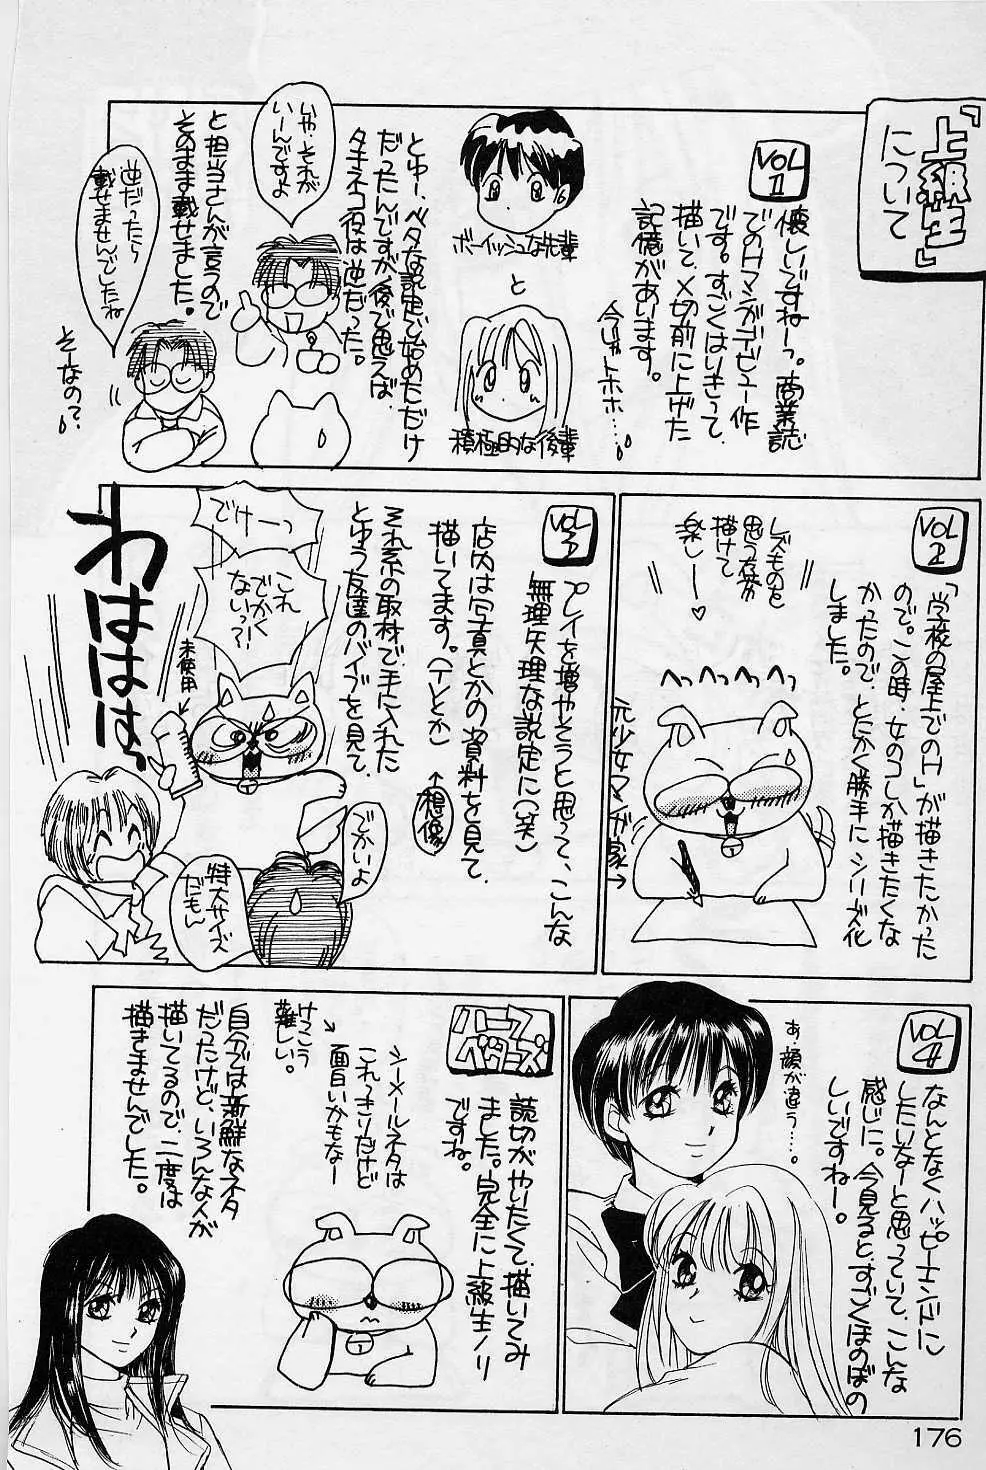 「上級生」
について
VOL
1
懐しいですねーっ。商業誌
でのHマンガデビュー作
です。すごくはりきって、
描いて、〆切前に上げた
記憶があります。
今じゃトホホ……。
ボーイッシュな先輩
と
積極的な後輩
とゆー、ベタな設定で始めただけ
だったんですが、後で思えば、
タチネコ役は逆だった。
いや、それが
いーんですよ
と担当さんが言うので
そのまま載せました。
逆だったら
載せませんでしたね
そーなの?
VOL
2
「学校の屋上でのH」が描きたかった
ので。この時、女のコしか描きたくな
かったので、とにかく勝手にシリーズ化
しました。
レズものを
思う存分
描けて
楽しー♡
へっへっへっへっ
元少女マンガ家→
VOL
3
プレイを増やそうと思って、こんな
無理矢理な設定に(笑)
店内は写真とかの資料を見て、
描いてます。(Tとか)
↑想像
それ系の取材で手に入れた
とゆう友達のバイブを見て、
でけーっ
これ
でかく
ない?!
未使用
わははは
でかいよ
特大サイズ
だもん
VOL
4
なんとなくハッピーエンドに
したいなーと思っていて、こんな
感じに。今見ると、すごくほのぼの
しいですねー。
あ、顔が違う…。
ハーフ
ベターズ
読切がやいたくて、描いてみ
ました。完全に上級生ノリ
ですね。
シーメールネタは
これっきりだけど
面白いかもなー
→
けっこう
難しい。
自分では新鮮なネタ
だったけど、いろんな人が
描いてるので、二度は
描きませんでした。
176